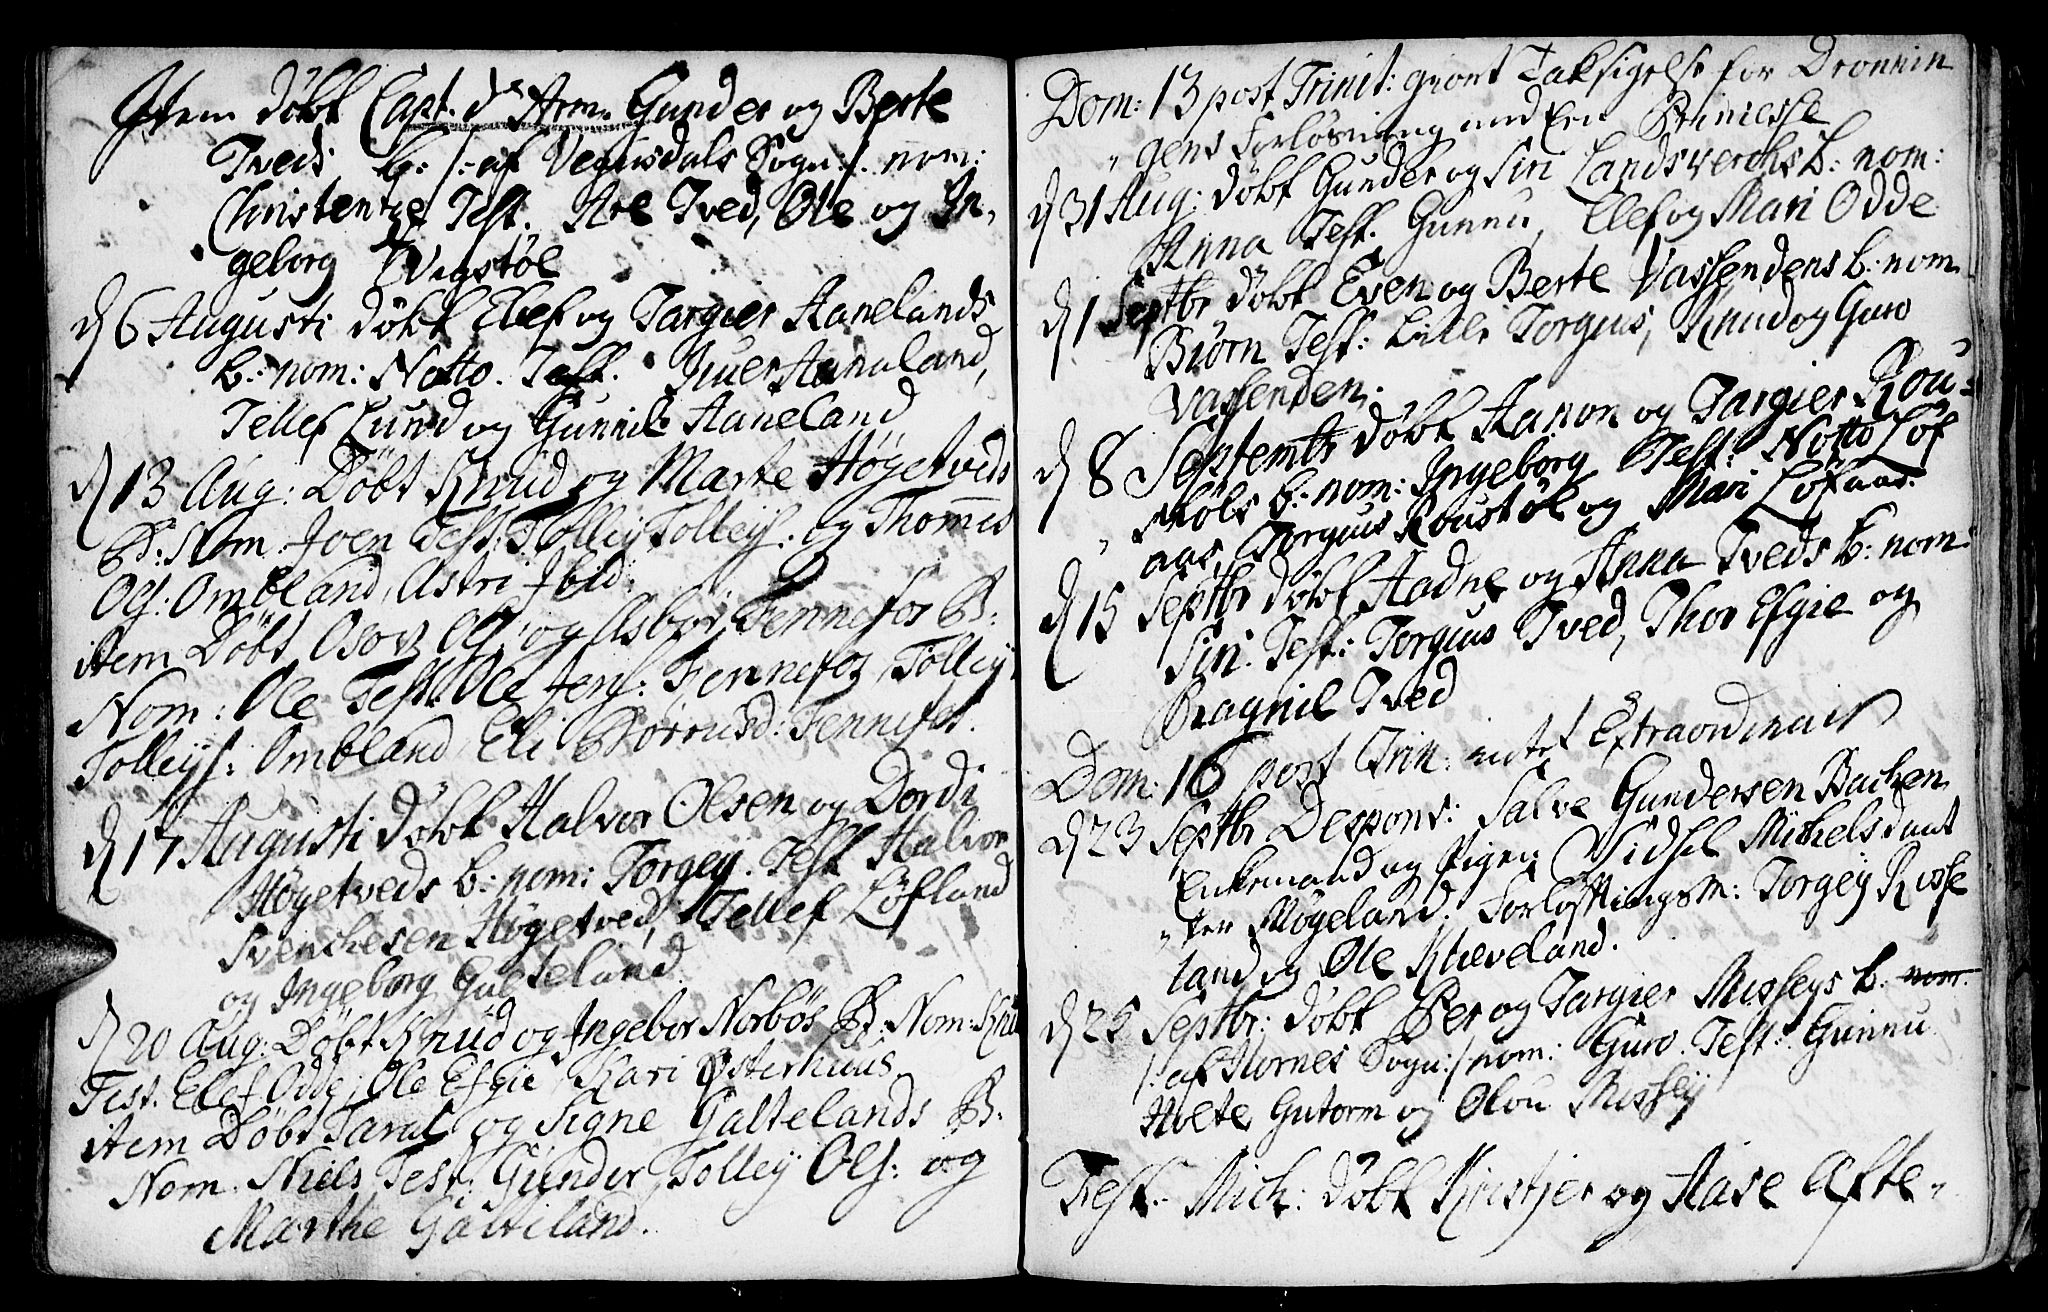 Item døbt Capt. d' Arm. Gunder og Berte
Tveds b: /: af Vegusdals Sogn :/ nom:
Christentze Test. Are Tved, Ole og In-
geborg Vigstøl
d 6 Augusti døbt Elef og Targier Aanelands
b: nom: Notto. Test. Iver Aanaland,
Tellef Lund og Gunnil Aaneland
d 13 Aug: Døbt Knud og Marte Høgetveds
B: Nom. Joen Test: Tolley Tolleys: og Thomes
Ols: Ombland, Astri Ibid.
item Døbt Osov Ols: og Asbor Fennefos B:
Nom: Ole Test. Ole Jens: Fennefos, Tolley
Tolleys: Ombland, Eli Børrusd: Fennefos.
d 17 Augusti døbt Halvor Olsen og Dordi
Høgetveds b: nom: Torgey. Test Halvor
Svenchesen Høgetved, Tellef Løfland
og Ingeborg Galteland
d 20 Aug: Døbt Knud og Ingebor Norbøs B: Nom: Knu
Test. Elef Odde, Ole Esgie, Kari Østerhuus
item Døbt Taral og Signe Galtelands B:
Nom. Niels Test: Gunder, Tolley Ols: og
Marthe Galteland.
Dom: 13 post Trinit: giort Taksigelse for Dronnin
"gens Forløsning med een Prinsesse
d 31 Aug: døbt Gunder og Siri Landsverchs b: nom:
Anna Test. Gunnu, Elef og Mari Odde
d 1 Septbr døbt Even og Berte Vassendens b: nom
Biørn Test: Lille Torgius, Knud og Guro
Vassenden.
d 8 Septembr døbt Aanon og Targier Rou-
"støls b: nom: Ingeborg Test: Notto Løf
aas, Torgius Roustøl og Mari Løfaas.
d 15 Septbr døbt Aadne og Anna Tveds b: nom:
Siri. Test: Torgius Tved, Thor Esgie og
Ragnil Tved
Dom: 16 post Trin: intet Extraordinair
d 23 Septbr Despons: Salve Gundersen Bachen
Enkemand og Pigen Sidsel Michelsdaat
"ter Høgeland. Forløftningsm: Torgey Risse
land og Ole Kleveland.
d 25 Septbr: døbt Per og Targier Messeys b: nom.
/: af Hornes Sogn :/ nom: Guro. Test: Gunnu
Holte, Gutorm og Olou Messey
Fest. Mich: døbt Kristjer og Aase Afte-